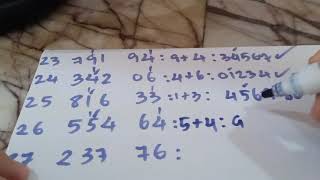 23 791 94 : 9+4 : 34567 ✓
24 342 06 : 4+6 : 01234 ✓
25 816 33 : 1+3 : 456
26 554 64 : 5+4 : 9
27 237 76 :